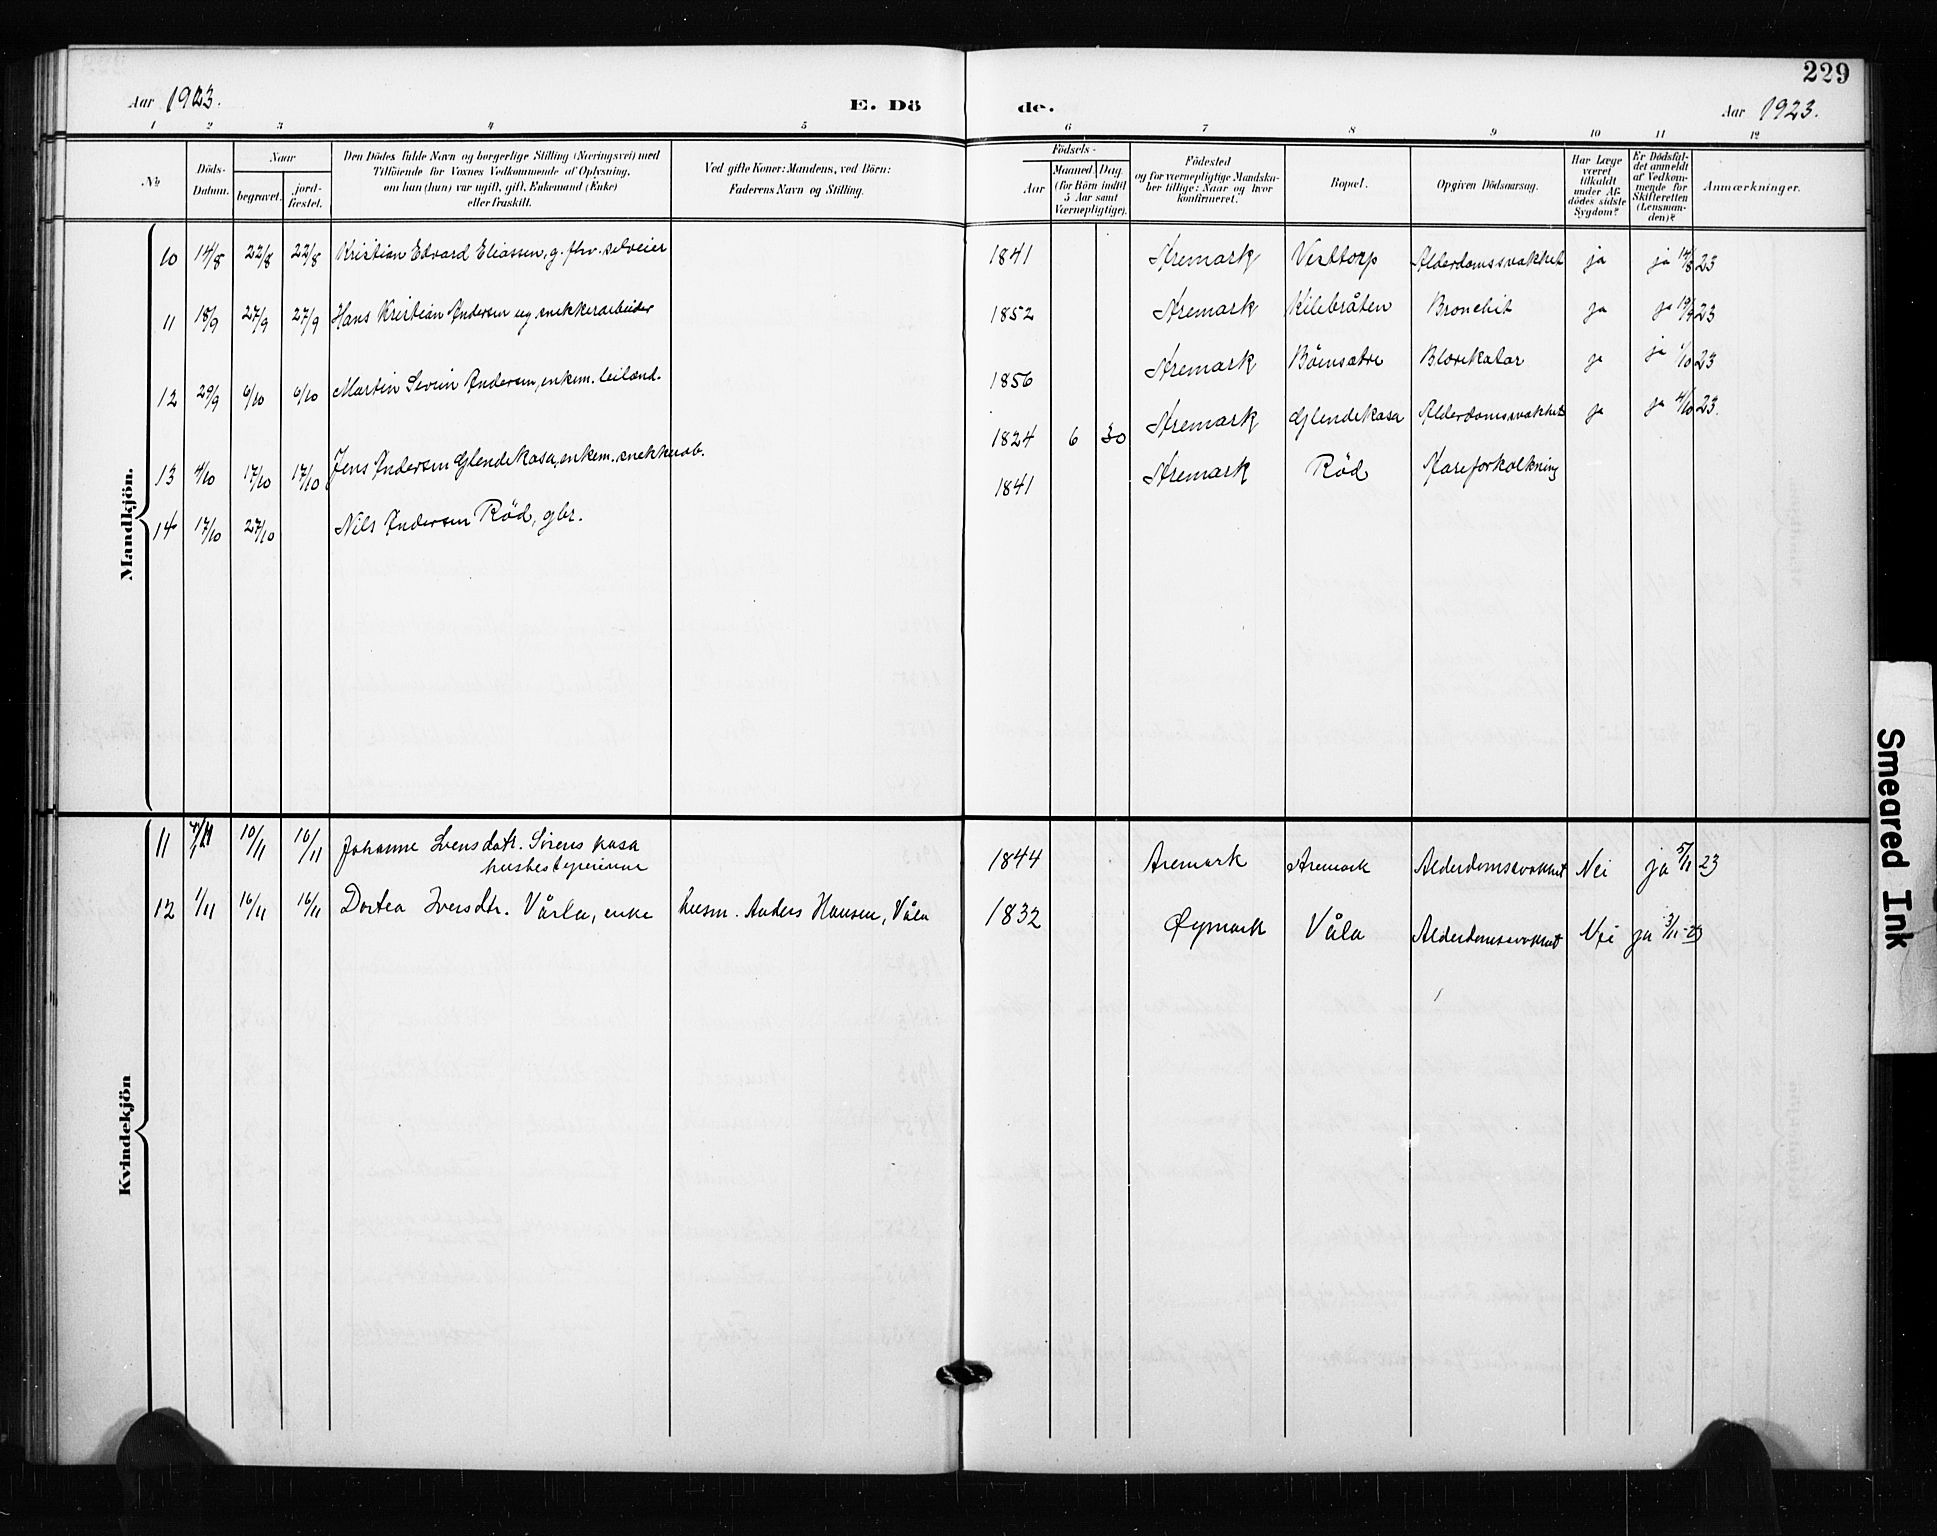 229
Aar 1923.
E. Dö
de.
Aar 1923.
1 2 3 4 5 6 7 8 9 10 11 12
No
Döds-
Datum.
Naar
begravet.
jord-
fæstet.
Den Dödes fulde Navn og borgerlige Stilling (Næringsvei) med
Tilföiende for Voxnes Vedkommende af Oplysning,
om han (hun) var ugift, gift, Enkemand (Enke)
eller fraskilt.
Ved gifte Koner: Mandens, ved Börn:
Faderens Navn og Stilling.
Födsels-
Aar
Maaned. Dag.
(for Börn indtil
5 Aar samt
Værnepligtige).
Födested
og for værnepligtige Mandska-
ber tillige: Naar og hvor
konfirmeret.
Bopæl.
Opgiven Dödsaarsag.
Har Læge
været
tilkaldt
under Af-
dödes sidste
Sygdom?
Er Dödsfal-
det anmeldt
af Vedkom-
mende for
Skifteretten
(Lensman-
den)?
Anmærkninger.
Mandkjön.
10 14/8 22/8 22/8 Kristian Edvard Eliassen, g. fhv. selveier 1841 Aremark Vesttorp Alderdomssvakhet ja ja 14/8 23
11 18/9 27/9 27/9 Hans Kristian Andersen ug snekkerarbeider 1852 Aremark Kilebråten Bronchit ja ja 19/9 23
12 29/9 6/10 6/10 Martin Severin Andersen, enkem. leilænd. 1856 Aremark Böensætre Blærekatar ja ja 1/10 23
13 4/10 17/10 17/10 Jens Andersen Glendekasa, enkem. snekkerab. 1824 6 30 Aremark Glendekasa Alderdomssvakhet ja ja 4/10 23.
14 17/10 27/10 Nils Andersen Rød, gbr. 1841 Aremark Rød Åreforkalkning
Kvindekjön
11 4/11 10/11 10/11 Johanne Svensdatt. Sørenskasa
husbestyrerinne
1844 Aremark Aremark Alderdomssvakhet Nei ja 5/11 23
12 1/11 16/11 16/11 Dortea Iversdtr. Vårla, enke husm. Anders Hansen, Våla 1832 Øymark Våla Alderdomssvakhet Nei ja 3/11-23
Smeared Ink